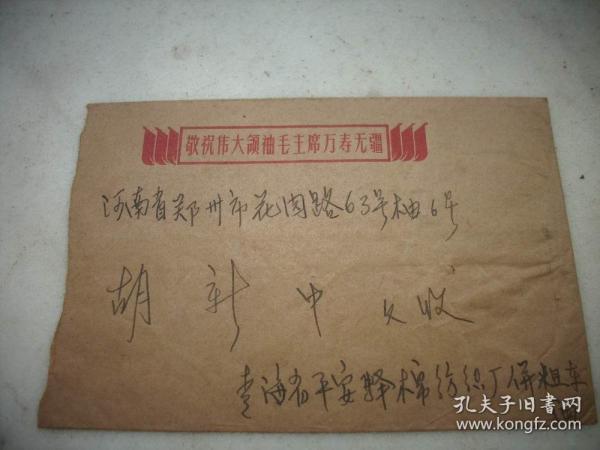 敬祝伟大领袖毛主席万寿无疆
河南省郑州市花园路63号 6号
胡新中 收
青海省平安驿棉纺织厂併粗车
孔夫子旧书网
www.kongfz.com